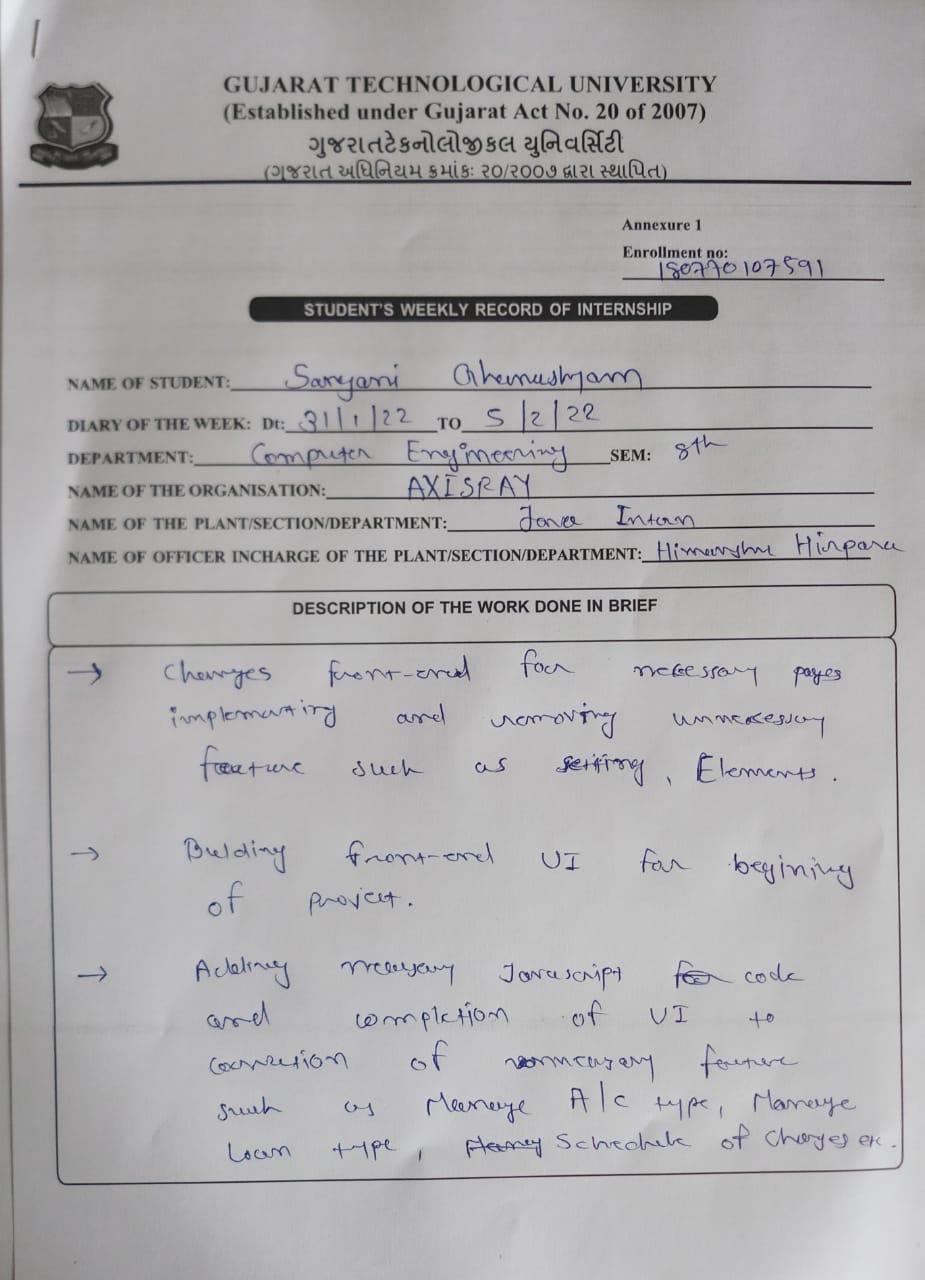 GUJARAT TECHNOLOGICAL UNIVERSITY
(Established under Gujarat Act No. 20 of 2007)
ગુજરાતટેકનોલોજીકલ યુનિવર્સિટી
(ગુજરાત અધિનિયમ ક્રમાંકઃ ૨૦/૨૦૦૭ દ્વારા સ્થાપિત)
Annexure 1
Enrollment no:
180770107591
STUDENT'S WEEKLY RECORD OF INTERNSHIP
NAME OF STUDENT: Sanyani Ghanushyam
DIARY OF THE WEEK: Dt: 31/1/22 TO 5/2/22
DEPARTMENT: Computer Engineering SEM: 8th
NAME OF THE ORGANISATION: AXISRAY
NAME OF THE PLANT/SECTION/DEPARTMENT: Java Intern
NAME OF OFFICER INCHARGE OF THE PLANT/SECTION/DEPARTMENT: Himanshu Hirpara
DESCRIPTION OF THE WORK DONE IN BRIEF
→ Changes front-end for necessary pages
implementing and removing unnecessary
feature such as setting, Elements.
→ Bulding front-end UI for begining
of project.
→ Adding necessary Javascript code
and completion of UI to
correction of feature
such as Manage A/c type, Manage
Loan type, Schedule of Charges etc.